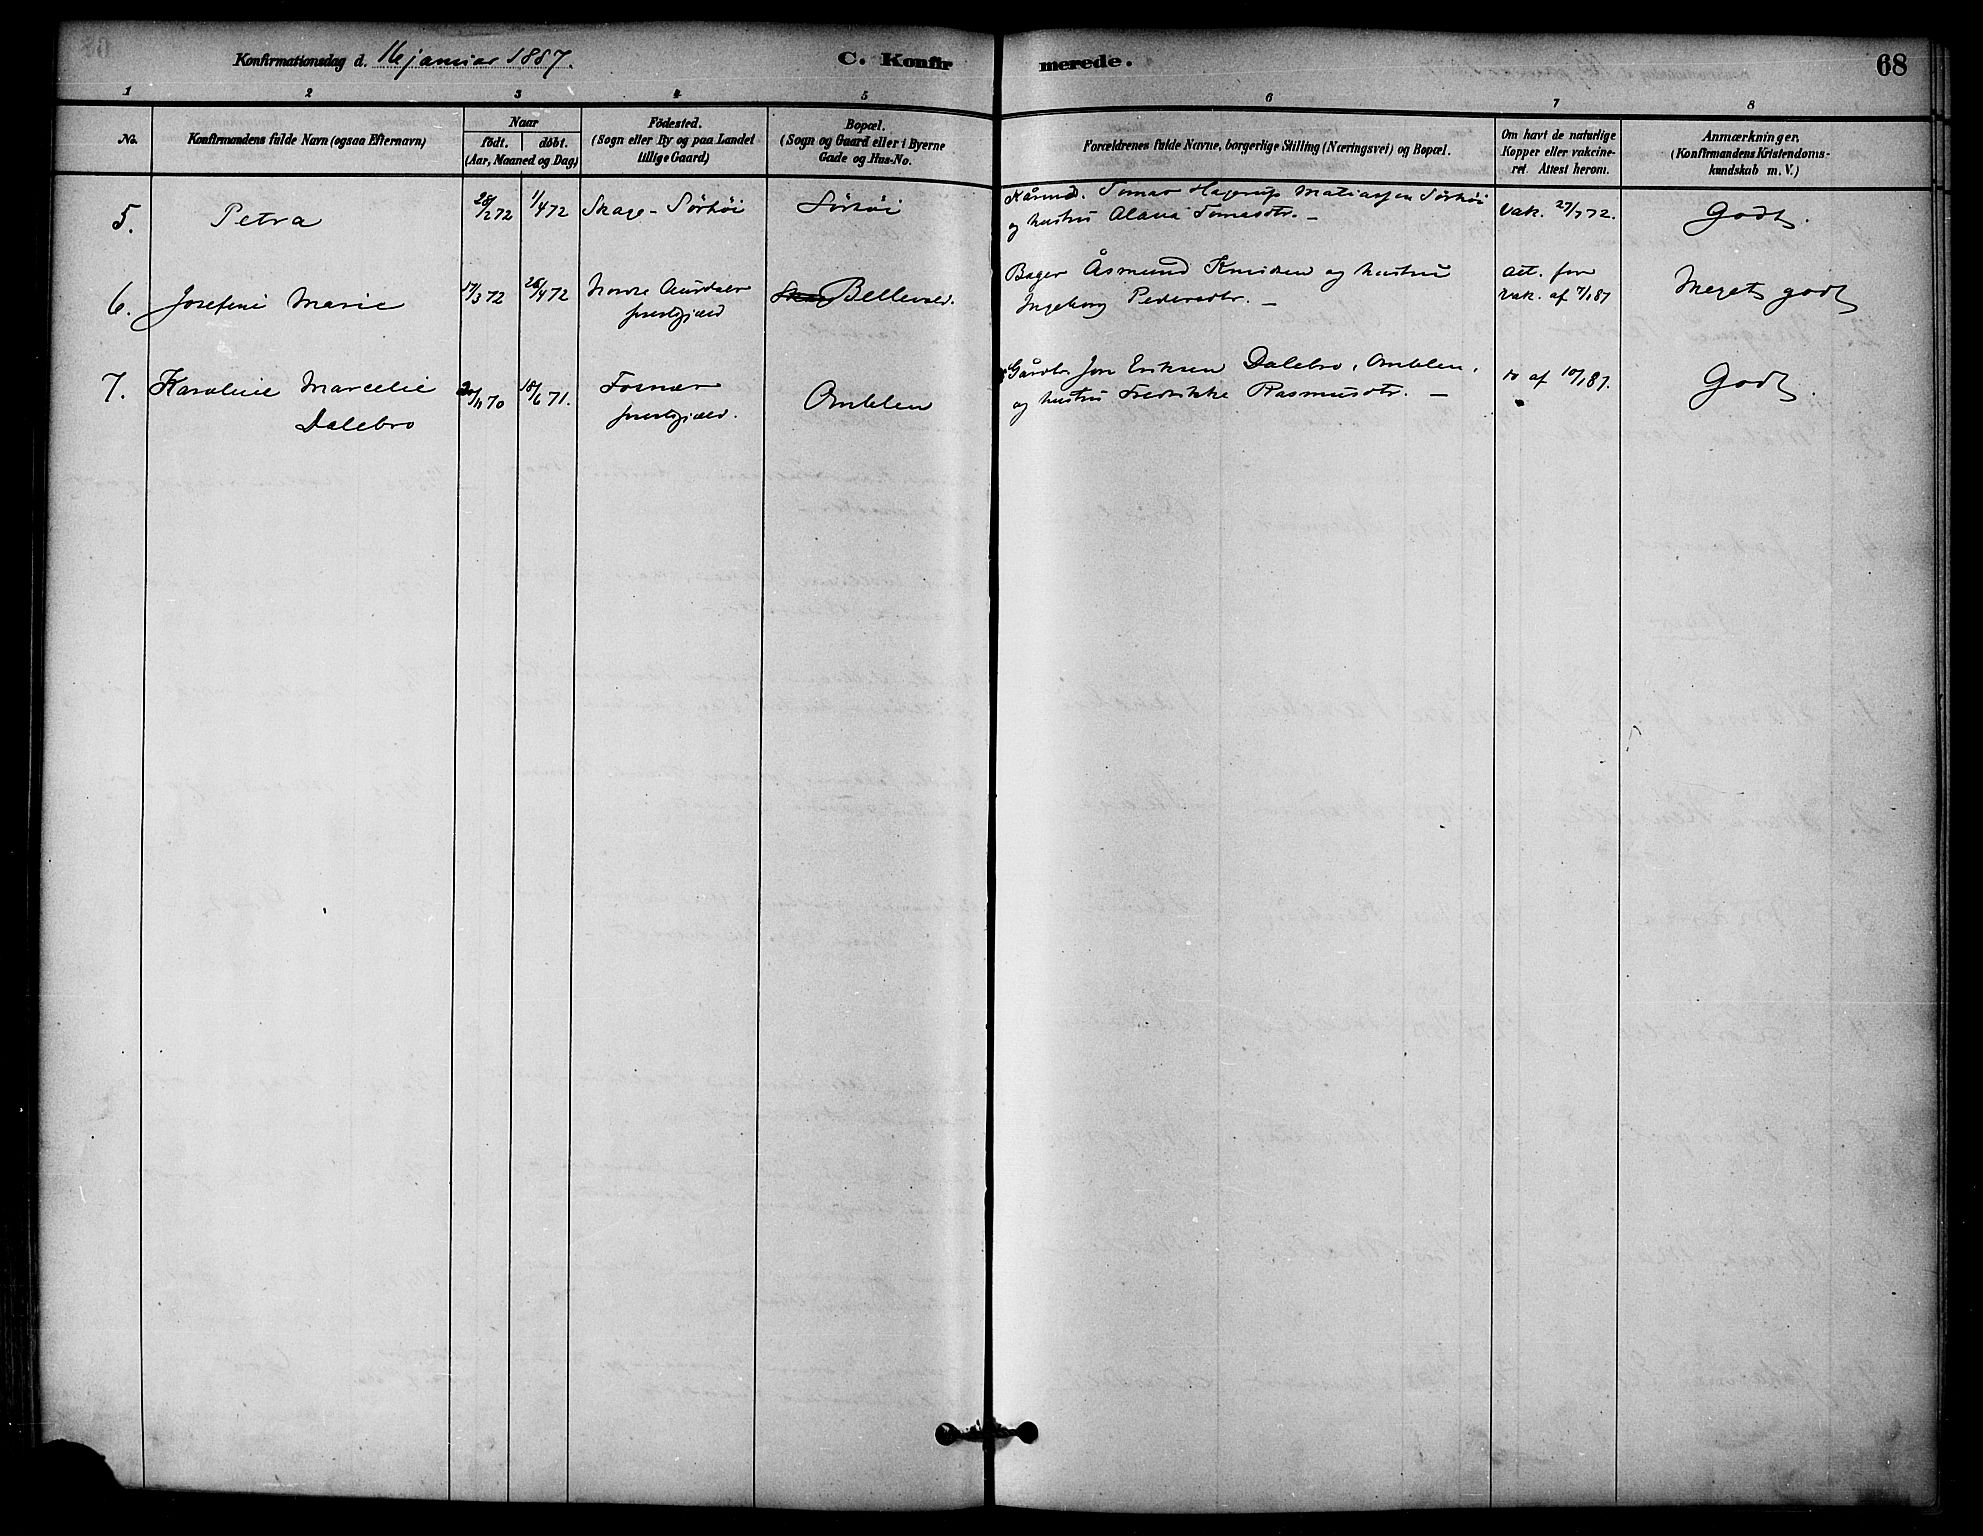 Konfirmationsdag d. 16 januar 1887.
C. Konfirmerede.
68
1 2 3 4 5 6 7 8
No.
Konfirmandens fulde Navn (ogsaa Efternavn)
Naar
født. døbt.
(Aar, Maaned og Dag)
Fødested.
(Sogn eller By og paa Landet
tillige Gaard)
Bopæl.
(Sogn og Gaard eller i Byerne
Gade og Hus-No.
Forældrenes fulde Navne, borgerlige Stilling (Næringsvei) og Bopæl.
Om havt de naturlige
Kopper eller vakcine-
ret. Attest herom.
Anmærkninger,
(Konfirmandens Kristendoms-
kundskab m. V.)
5. Petra 28/2 72 1/4 72 Skage - Sörhöi Sörhöi
Kårmd. Tomas Hagerup Matiassen Sörhöi
og hustru Alava Tomasdtr. —
Vak. 27/7 72.
Godt.
6. Josefine Marie 17/3 72 26/4 72 Nordre Aurdals
prestegjæld
Skage Bellevue.
Bager Åsmund Knudsen og hustru
Ingeborg Pedersdtr. —
att. for
vak. af 7/1 87
Meget godt
7. Karoline Marcelie
Dalebro
20/11 70 18/6 71. Fosnæs
prestegjæld.
Amblen
Gårdbr. Jon Eriksen Dalebro, Amblen,
og hustru Fredrikke Rasmusdtr. —
af 10/1 87.
Godt.